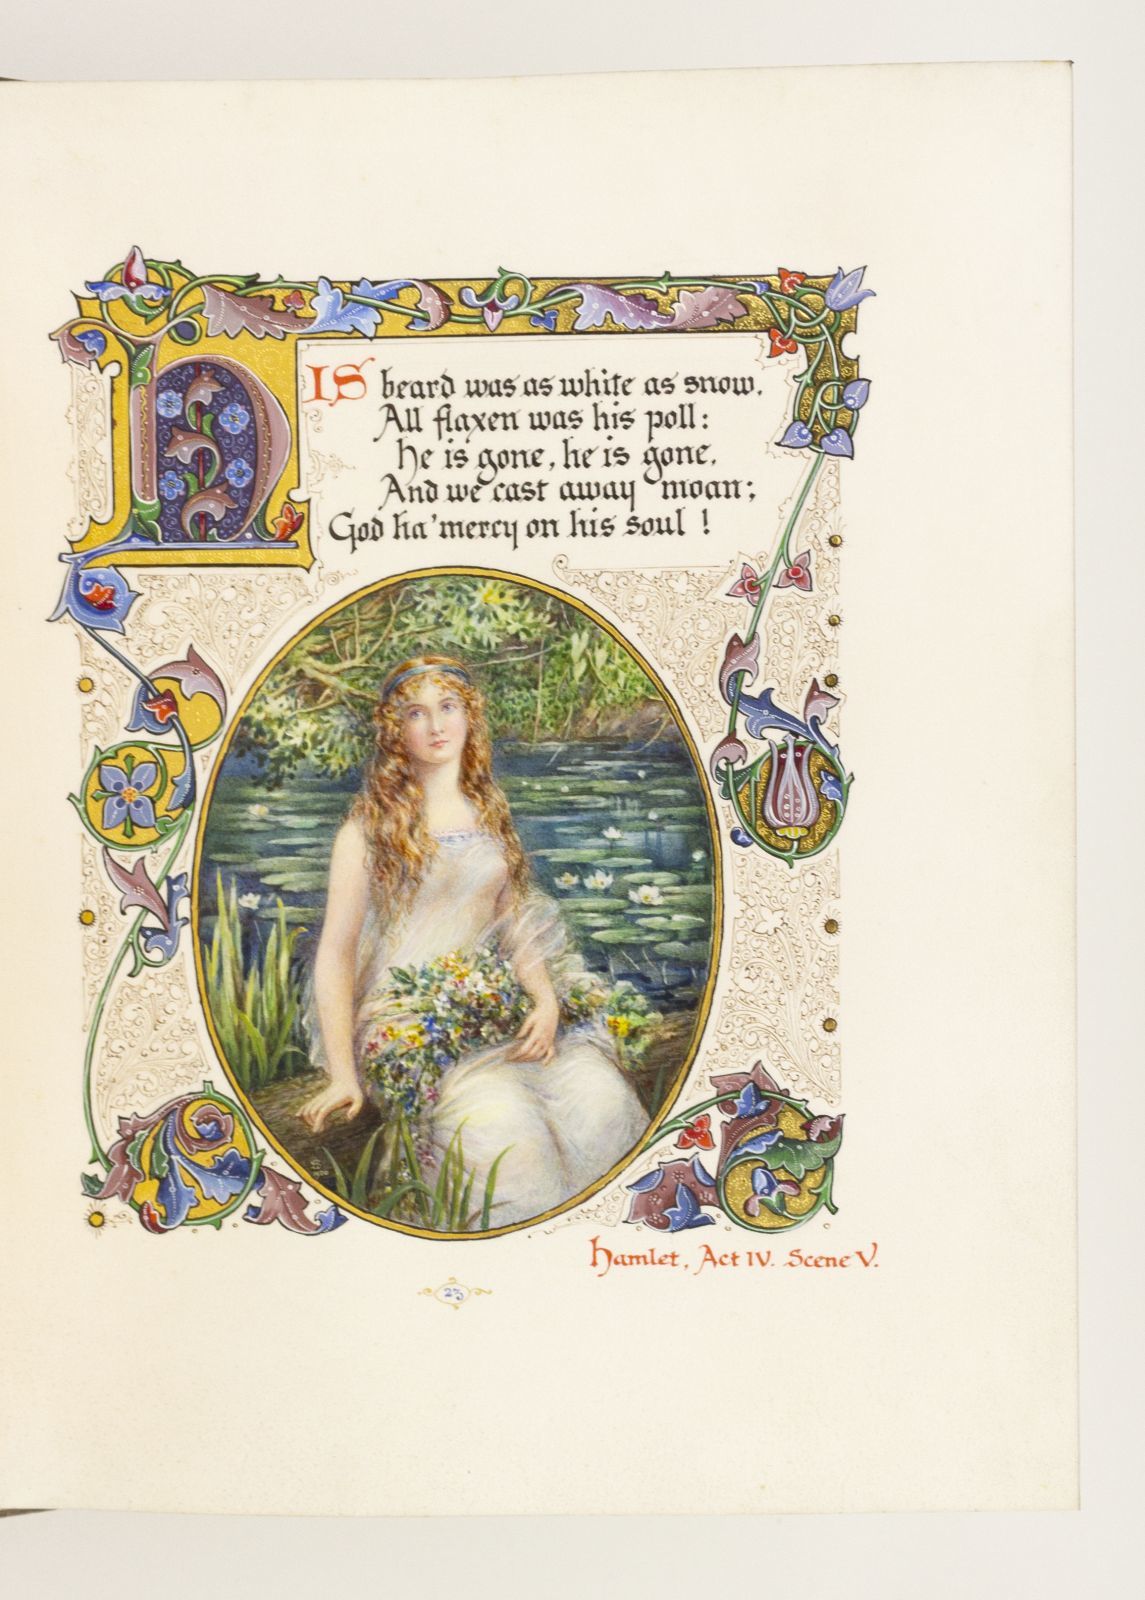 HIS beard was as white as snow.
All flaxen was his poll:
He is gone, he is gone,
And we cast away moan;
God ha' mercy on his soul !
Hamlet, Act IV. Scene V.
23